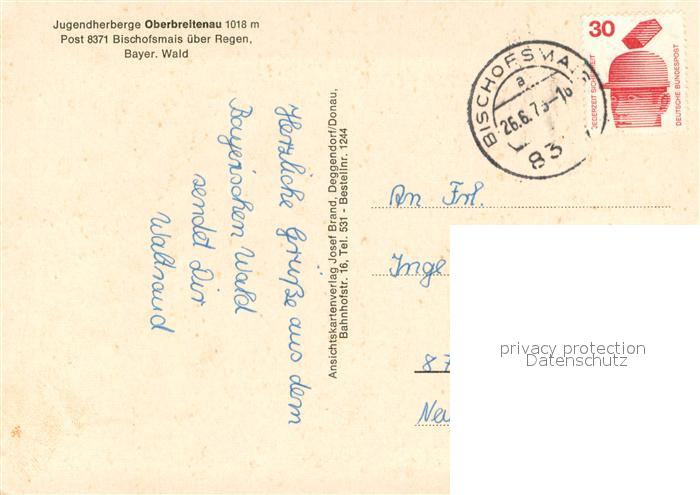 Jugendherberge Oberbreitenau 1018 m
Post 8371 Bischofsmais über Regen,
Bayer. Wald
30
JEDERZEIT SICHERHEIT
DEUTSCHE BUNDESPOST
BISCHOFSMAI
a
26.6.7
83
Herzliche Grüße aus dem
Bayerischen Wald
sendet Dir
Waltraud
Ansichtskartenverlag Josef Brand, Deggendorf/Donau,
Bahnhofstr. 16, Tel. 531 - Bestellnr. 1244
An Frl.
Inge
87
Neu
privacy protection
Datenschutz